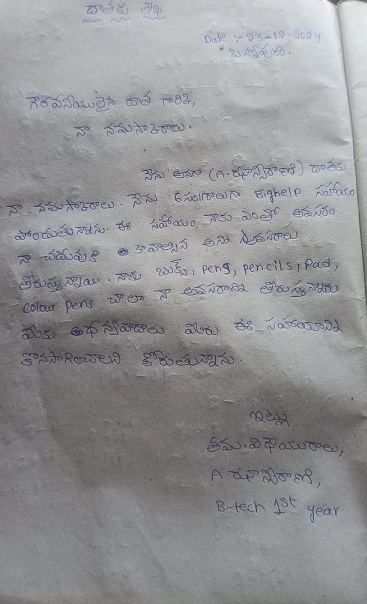 దాతకు లేఖ
Date :- 23-12-2024
బుస్సాపురం.
గౌరవనీయులైన దాత గారికి,
నా నమస్కారాలు.
నేను అనగా (A. ఝాన్సీరాణి) దాతకు
నా నమస్కారాలు. నేను 6 సం||రాలుగా help సహాయం
పొందుతున్నాను. ఈ సహాయం నాకు ఎంతో అవసరం
నా చదువుకి కావాల్సిన అన్ని అవసరాలు
తీరుస్తున్నాయి. నాకు బుక్స్, pens, pencils, Pad,
colour pens చాలా నా అవసరాన్ని తీరుస్తున్నారు
మీకు ధన్యవాదాలు మీరు ఈ సహాయాన్ని
కొనసాగించాలని కోరుతున్నాను.
ఇట్లు
తమ విధేయురాలు,
A ఝాన్సీరాణి,
B-tech 1st year